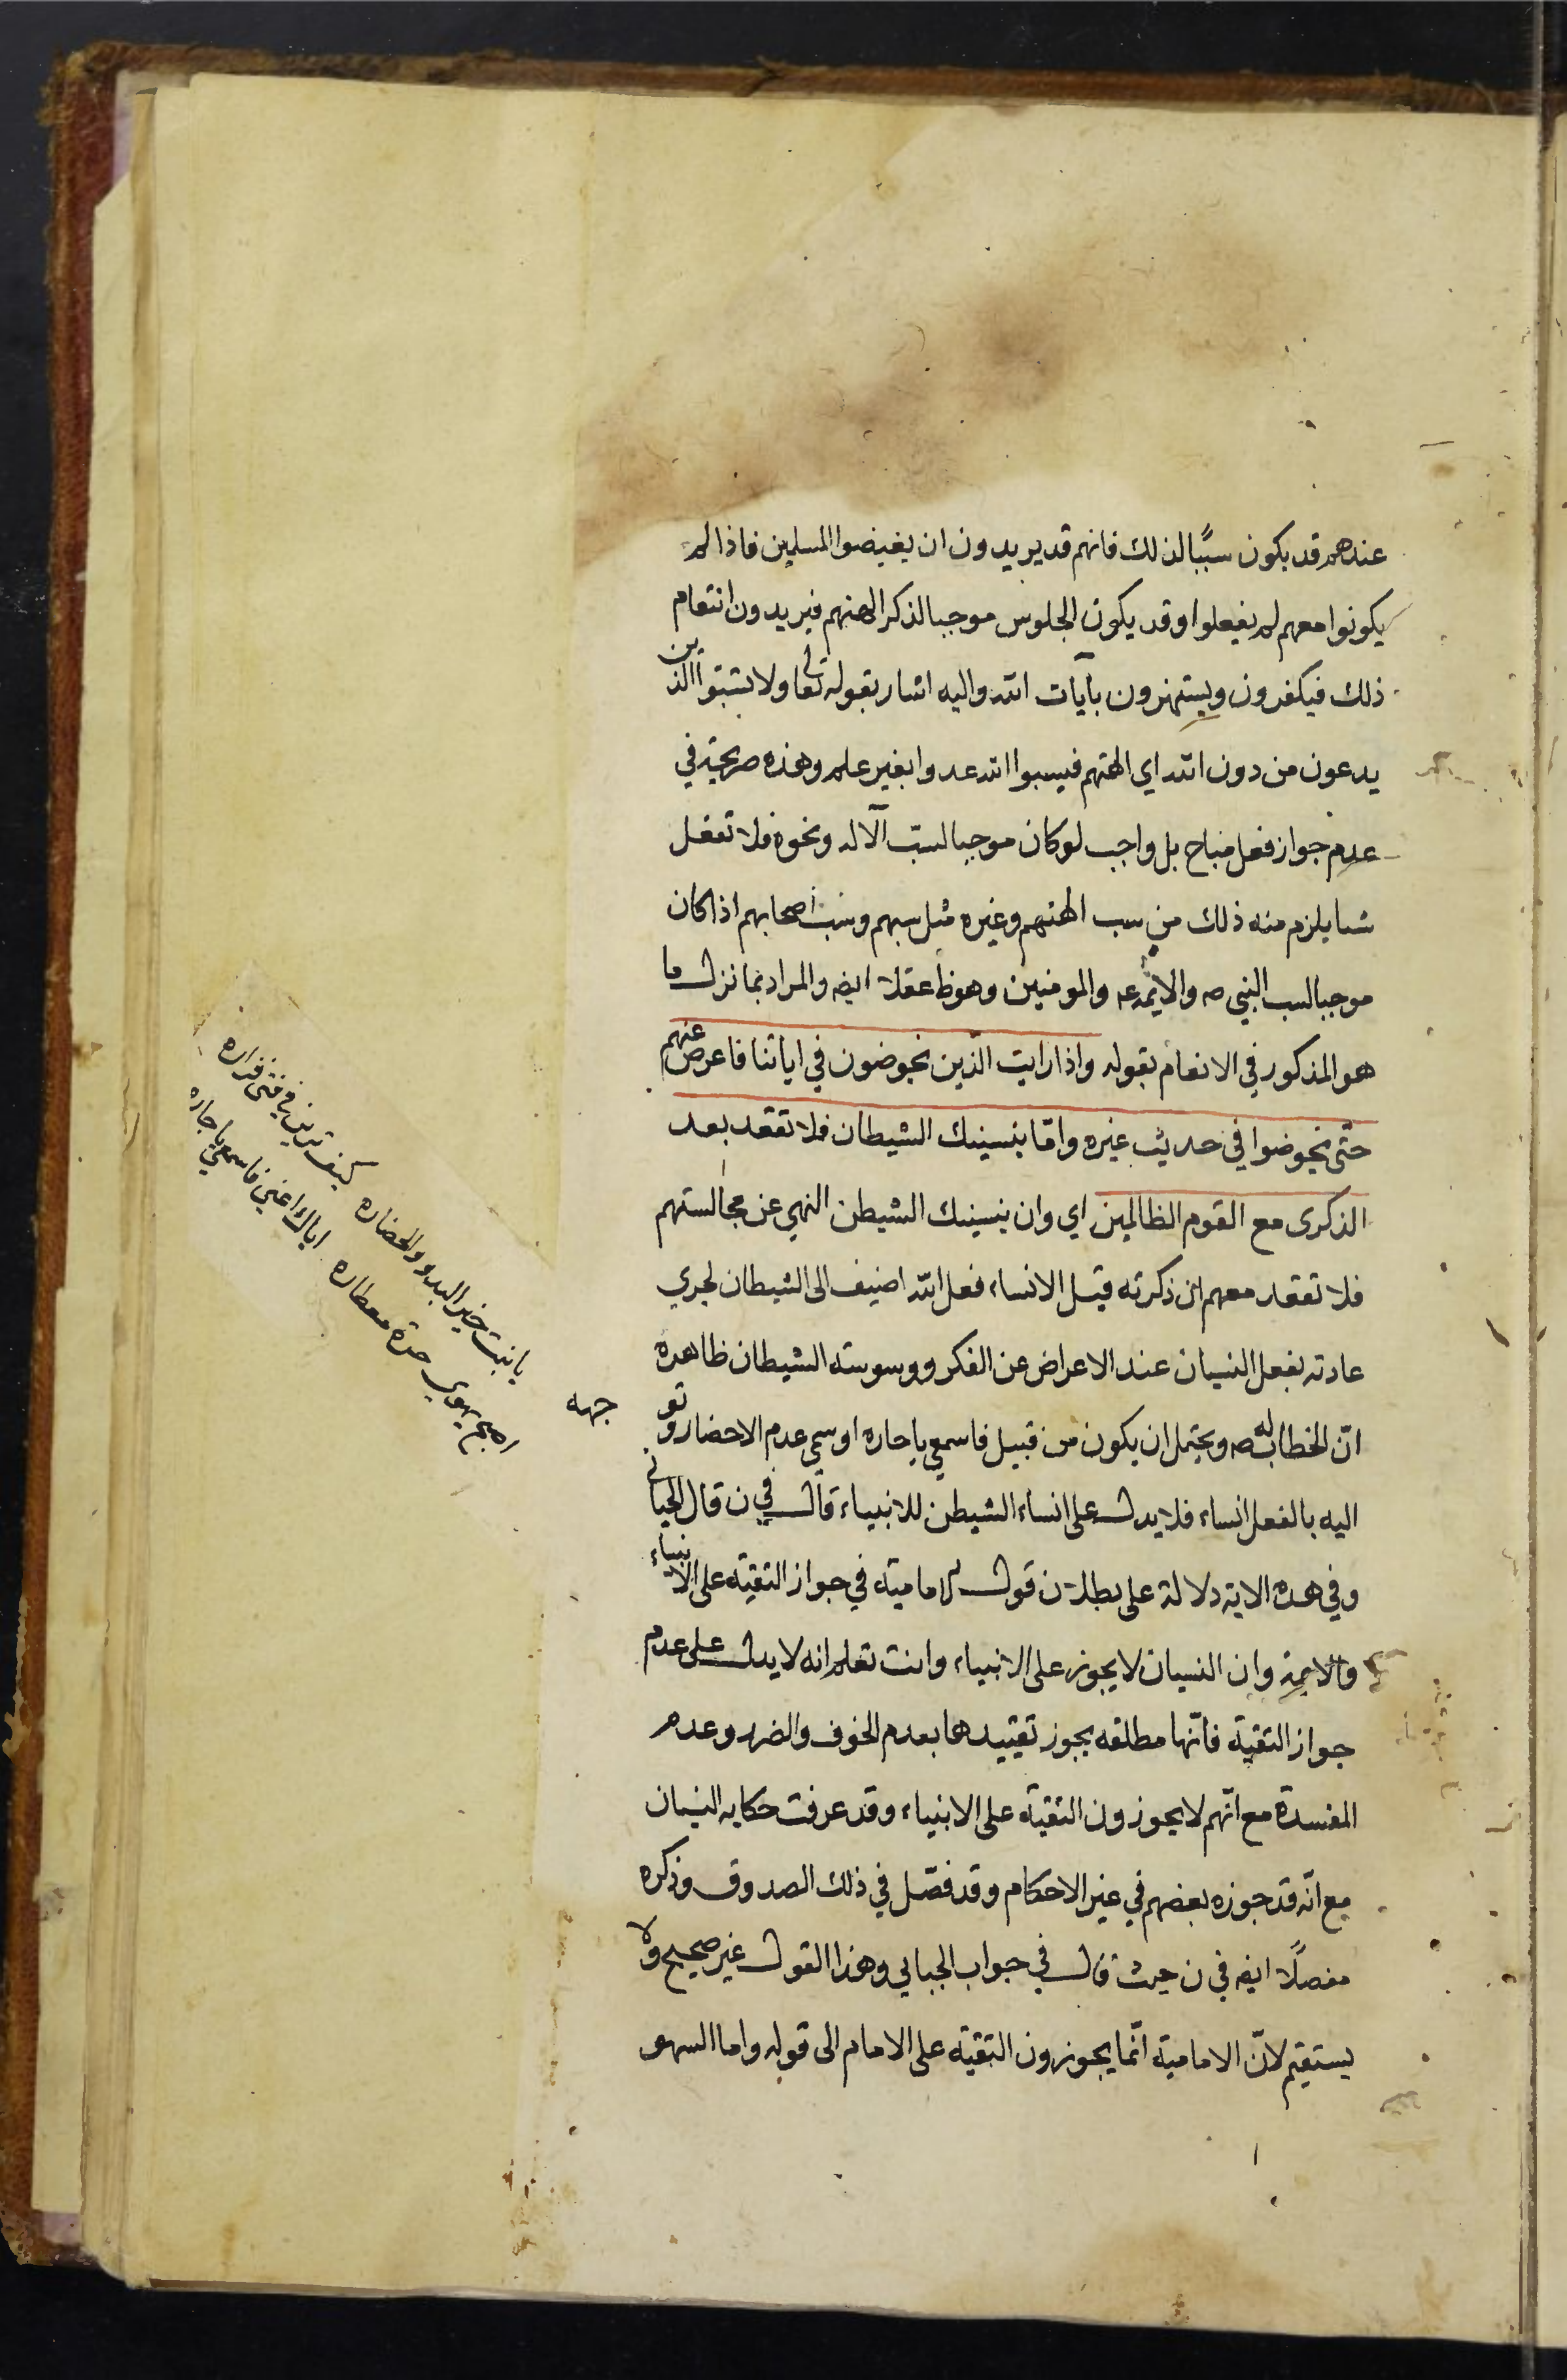 عندهم قد يكون سببًا لذلك فانهم قد يريدون ان يغيضوا المسلمين فاذا لم
يكونوا معهم لم يفعلوا وقد يكون الجلوس موجبا لذكر الهتهم فيريدون انتقام
ذلك فيكفرون ويستهزءون بآيات الله واليه اشار بقوله تعالى ولا تسبوا الذين
يدعون من دون الله اي الهتهم فيسبوا الله عدوا بغير علم وهذه صريحة في
عدم جواز فعل مباح بل واجب لو كان موجبا لسب الآله ونحوه فلا تغفل
عما يلزم منه ذلك من سب الهتهم وغيره مثل سبهم وسب اصحابهم اذا كان
موجبا لسب النبي صه والائمه عه والمومنين وهو ظ عقلا ايضه والمراد بما نزل ما
هو المذكور في الانعام بقوله واذا رايت الذين يخوضون في اياتنا فاعرض عنهم
حتى يخوضوا في حديث غيره وامّا ينسينك الشيطان فلا تقعد بعد
الذكرى مع القوم الظالمين اي وان ينسينك الشيطن النهي عن مجالستهم
فلا تقعد معهم ان ذكرته قيل الانساء فعل الله اضيف الى الشيطان لجري
عادته بفعل النسيان عند الاعراض عن الفكر ووسوسته الشيطان ظاهره
انّ الخطاب له صه ويحتمل ان يكون من قبيل فاسمعي يا جاره او سمي عدم الاحضار وتوجهه
اليه بالفعل انساء فلا يدل على انساء الشيطن للانبياء قال في ن قال الجبائي
وفي هذه الاية دلالة على بطلان قول الامامية في جواز التقية على الانبياء
والائمة وان النسيان لا يجوز على الانبياء وانت تعلم انه لا يدل على عدم
جواز التقية فانّها مطلقه يجوز تقييدها بعدم الخوف والضرر وعدم
المفسدة مع انّهم لا يجوزون التقية على الانبياء وقد عرفت حكايه النسيان
مع انّه قد جوزه بعضهم في غير الاحكام وقد فصّل في ذلك الصدوق وذكره
مفصلًا ايضه في ن حيث قال في جواب الجبايي وهذا القول غير صحيح ولا
يستقيم لانّ الامامية انّما يجوزون التقية على الامام الى قوله واما السهو
يا بنت خير البدو والحضاره كيف ترين في فتى فزاره
اصبح يهوى حرة معطاره اياك اعني فاسمعي يا جاره